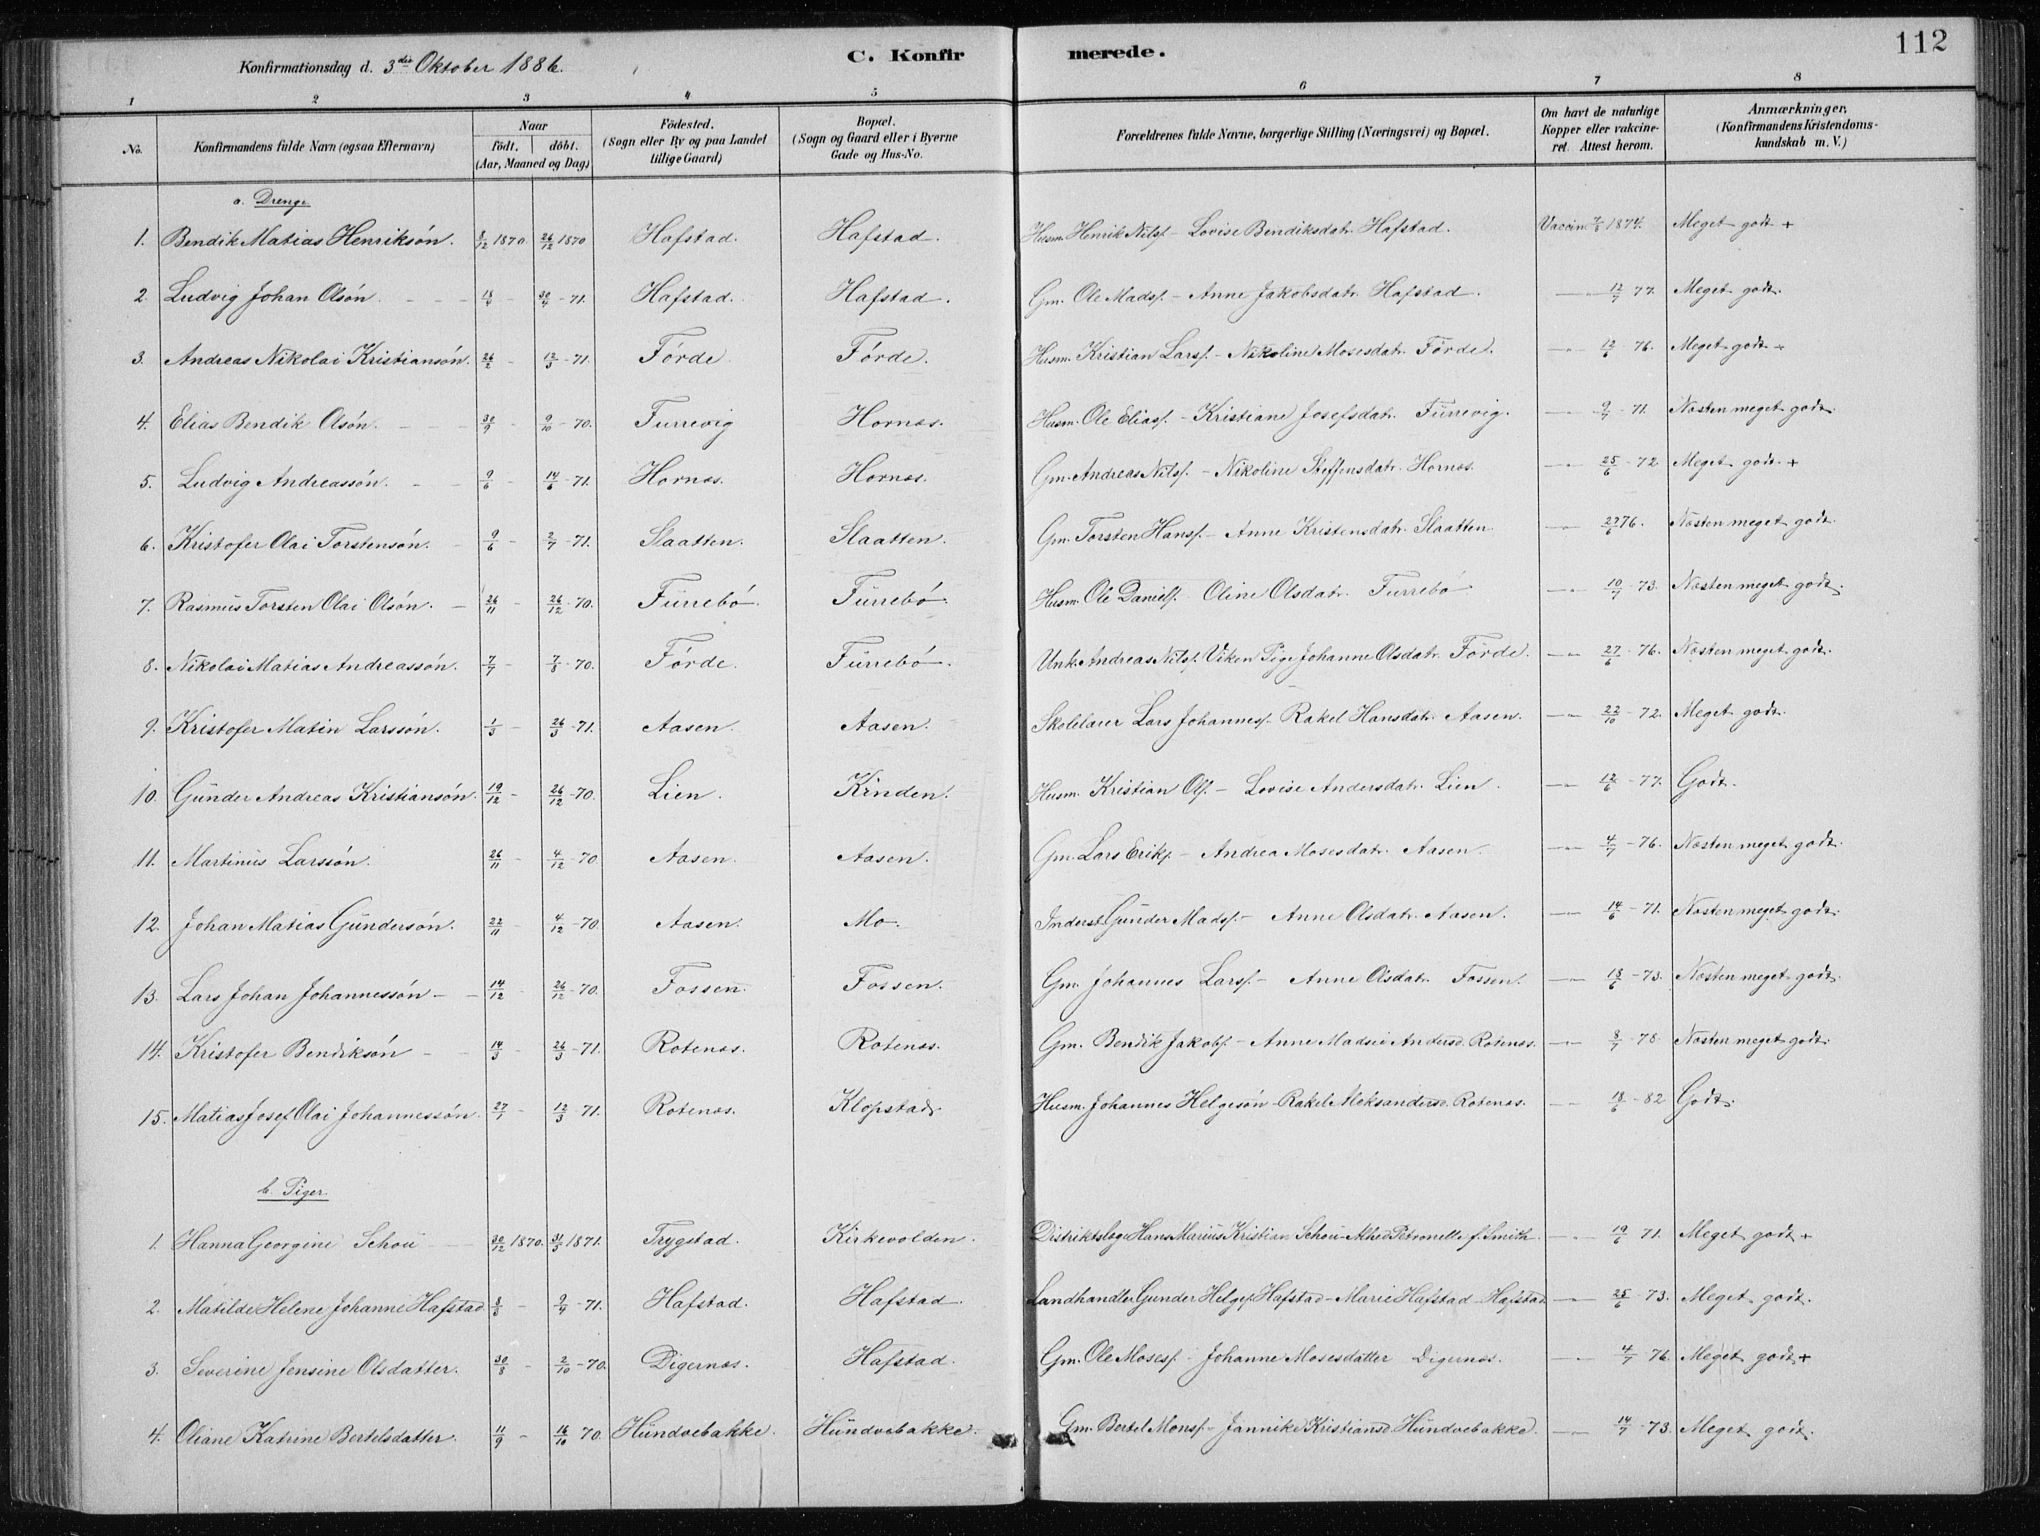 112
Konfirmationsdag d. 3die Oktober 1886. C. Konfirmerede.
1 2 3 4 5 6 7 8
No. Konfirmandens fulde Navn (ogsaa Efternavn) Naar født. døbt. (Aar, Maaned og Dag) Fødested. (Sogn eller By og paa Landet tillige Gaard) Bopæl. (Sogn og Gaard eller i Byerne Gade og Hus-No. Forældrenes fulde Navne, borgerlige Stilling (Næringsvei) og Bopæl. Om havt de naturlige Kopper eller vakcineret. Attest herom. Anmærkninger. (Konfirmandens Kristendomskundskab m. V.)
a. Drenge
1. Bendik Matias Henriksøn. 8/12 1870. 26/12 1870 Hafstad. Hafstad. Husm. Henrik Nilss. – Lovise Bendiksdatr. Hafstad. Vaccin. 7/8 1874. Meget godt +
2. Ludvig Johan Olsøn. 18/4 – 30/4 - 71. Hafstad. Hafstad. Gm. Ole Madss. – Anne Jakobsdatr. Hafstad. 12/7 77. Meget godt.
3. Andreas Nikolai Kristiansøn. 26/2 – 12/3 - 71. Førde Førde. Husm. Kristian Larss. – Nikoline Mosesdatr. Førde. 12/6 - 76. Meget godt +
4. Elias Bendik Olsøn. 30/9 – 9/10 - 70. Furrevig Hornæs. Husm. Ole Eliass. – Kristiane Josefsdatr. Furrevig. 9/7 - 71. Næsten meget godt.
5. Ludvig Andreassøn. 9/6 – 14/6 - 71. Hornæs. Hornæs. Gm. Andreas Nilss. – Nikoline Steffensdatr. Hornæs. 25/6 - 72 Meget godt. +
6. Kristofer Olai Torstensøn. 9/6 – 2/7 - 71. Slaatten. Slaatten. Gm. Torsten Hanss. – Anne Kristensdatr. Slaatten. 27/6 76. Næsten meget godt.
7. Rasmus Torsten Olai Olsøn. 26/11 – 26/12 - 70. Furrebø. Furrebø. Husm. Ole Daniels. Oline Olsdatr. Furrebø 10/7 - 73. Næsten meget godt.
8. Nikolai Matias Andreassøn. 7/7 – 7/8 - 70. Førde. Furrebø. Unk. Andreas Nilss. Viken Pige Johanne Olsdatr. Førde. 27/6 - 76. Næsten meget godt.
9. Kristofer Matin Larssøn. 1/3 – 26/3 - 71. Aasen. Aasen. Skolelærer Lars Johanness. Rakel Hansdatr. Aasen. 22/10 - 72. Meget godt.
10. Gunder Andreas Kristiansøn. 19/12 – 26/12 - 70. Lien. Husm. Kristian Ols. – Lovise Andersdatr. Lien. 12/6 - 77. Godt.
11. Martinus Larssøn. 26/11 4/12 - 70. Aasen. Aasen. Gm. Lars Eriks. – Andrea Mosesdatr. Aasen. 4/7 - 76. Næsten meget godt.
12. Johan Matias Gundersøn. 22/11 – 4/12 - 70. Aasen. Mo. Inderst Gunder Madss. – Anne Olsdatr. Aasen. 14/6 - 71. Næsten meget godt.
13. Lars Johan Johannessøn – 14/12 – 26/12 - 70. Fossen. Fossen. Gm. Johannes Larss. – Anne Olsdatr. Fossen. 18/6 - 73. Næsten meget godt.
14. Kristofer Bendiksøn 14/3 – 26/3 - 71. Rotenæs. Rotenæs. Gm. Bendik Jakobs. – Anne Madsie Andersd. Rotenæs. 8/7 - 78 Næsten meget godt.
15. Matias Josef Olai Johannessøn. 27/1 – 12/3 - 71. Rotenæs. Klopstad. Husm. Johannes Helgesøn – Rakel Aleksandersd. Rotenæs. 18/6 - 82 Godt.
b. Piger.
1. Hanna Georgine Schou 30/12 1870. 31/5 1871. Trygstad. Kirkevolden. Distriktslæge Hans Marius Kristian Schou – Petronelle f. Smith. 19/6 71. Meget godt +
2. Matilde Helene Johanne Hafstad 9/4 - 71. Hafstad. Hafstad. Landhandler Gunder Helges. Hafstad – Marie Hafstad Hafstad 25/6 - 73. Meget godt.
3. Severine Jensine Olsdatter. 30/8 – 2/10 - 70. Digernæs. Hafstad. Gm. Ole Moses. – Johanne Mosesdatter Digernæs. 4/7 76. Meget godt +
4. Oliane Katrine Bertelsdatter. 11/9 – 16/10 70. Hundvebakke. Hundvebakke. Gm. Bertel Monss. – Jannike Kristiansd. Hundvebakke. 14/7 - 73. Meget godt.